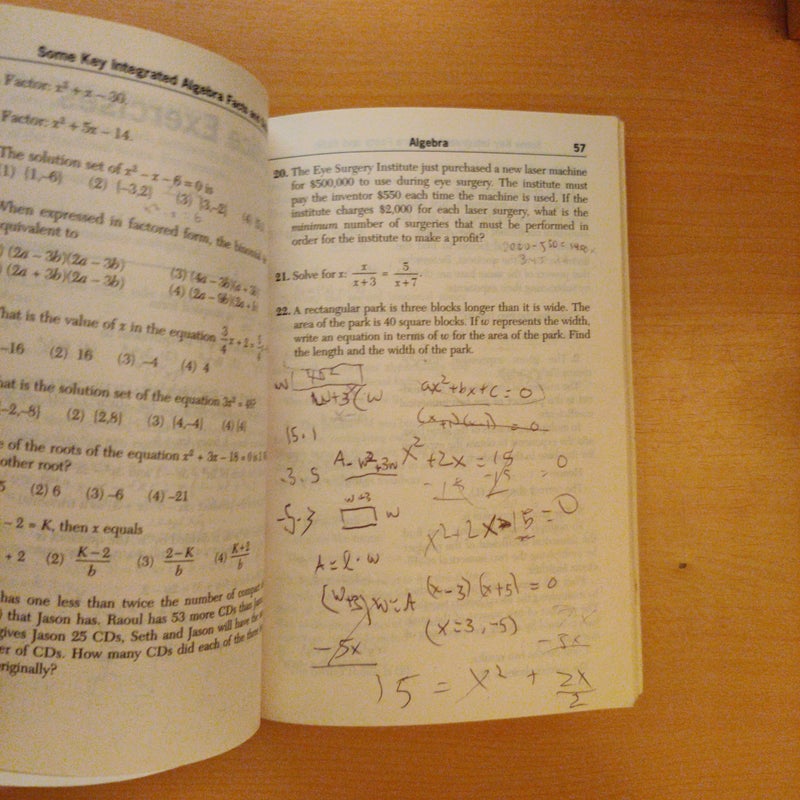 Some Key Integrated Algebra Facts and
Factor: x² + x − 30.
Factor: x² + 5x − 14.
The solution set of x² − x − 6 = 0 is
(1) {1,−6} (2) {−3,2} (3) {3,−2} (4)
When expressed in factored form, the binomial
equivalent to
(2a − 3b)(2a − 3b) (3) (4a − 3b)(a + 3b)
(2a + 3b)(2a − 3b) (4) (2a − 9b)(2a + b)
What is the value of x in the equation 3/4 x + 2 =
−16 (2) 16 (3) −4 (4) 4
hat is the solution set of the equation 3x² = 48?
{−2,−8} (2) {2,8} (3) {4,−4} (4) {4}
e of the roots of the equation x² + 3x − 18 = 0 is
other root?
(2) 6 (3) −6 (4) −21
− 2 = K, then x equals
+ 2 (2) K − 2/b (3) 2 − K/b (4) K + 2/b
has one less than twice the number of compact
) that Jason has. Raoul has 53 more CDs than
gives Jason 25 CDs, Seth and Jason will have the
er of CDs. How many CDs did each of the
riginally?
Algebra 57
20. The Eye Surgery Institute just purchased a new laser machine
for $500,000 to use during eye surgery. The institute must
pay the inventor $550 each time the machine is used. If the
institute charges $2,000 for each laser surgery, what is the
minimum number of surgeries that must be performed in
order for the institute to make a profit?
21. Solve for x: x/x + 3 = 5/x + 7.
22. A rectangular park is three blocks longer than it is wide. The
area of the park is 40 square blocks. If w represents the width,
write an equation in terms of w for the area of the park. Find
the length and the width of the park.
w
w+3(w
15.1
.3.5
-5.3
A=w²+3w
w+3
w
A=l·w
(w+3)w=A
-5x
ax²+bx+c=0
x²+2x=15
-15 -15
=0
x²+2x-15=0
(x-3)(x+5)=0
(x=3,-5)
-5x
15=x²+2x/2